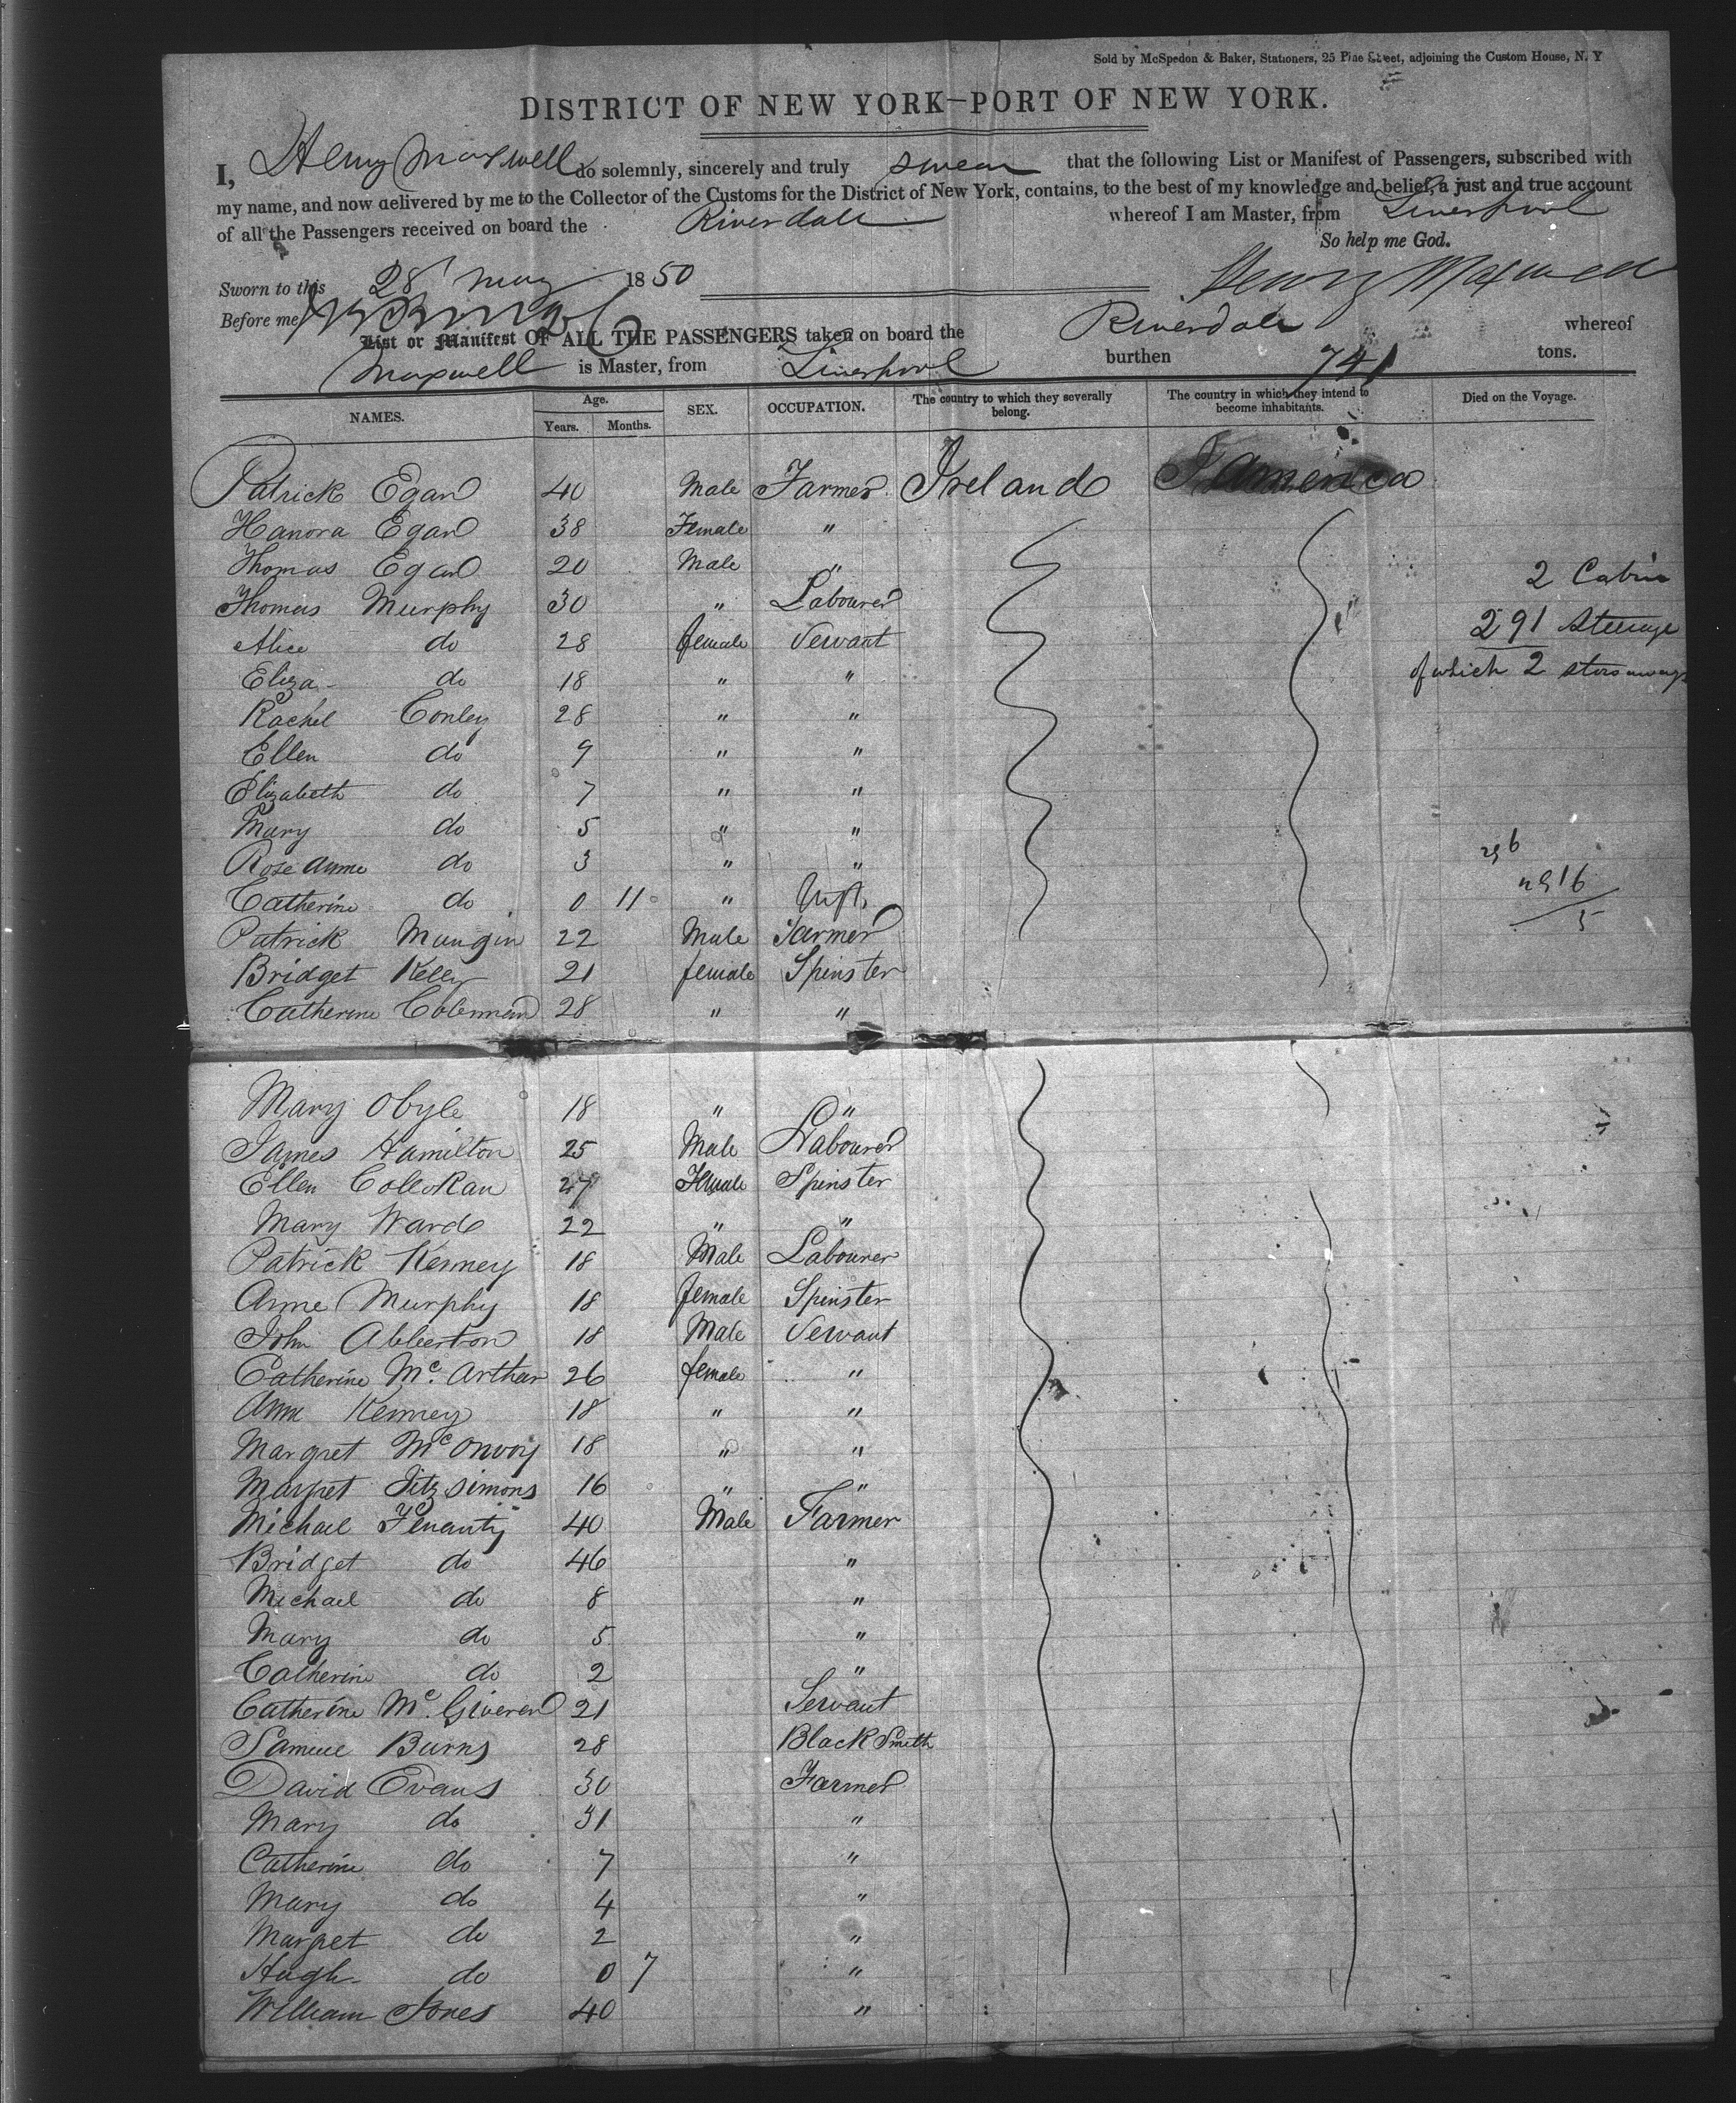 Sold by McSpedon & Baker, Stationers, 25 Pine Street, adjoining the Custom House, N. Y
DISTRICT OF NEW YORK—PORT OF NEW YORK.
I, Henry Maxwell do solemnly, sincerely and truly swear that the following List or Manifest of Passengers, subscribed with
my name, and now delivered by me to the Collector of the Customs for the District of New York, contains, to the best of my knowledge and belief, a just and true account
of all the Passengers received on board the Riverdale whereof I am Master, from Liverpool
So help me God.
Sworn to this 28 May 1850 Henry Maxwell
Before me
List or Manifest OF ALL THE PASSENGERS taken on board the Riverdale whereof
Maxwell is Master, from Liverpool burthen 741 tons.
NAMES. Age. Years. Months. SEX. OCCUPATION. The country to which they severally belong. The country in which they intend to become inhabitants. Died on the Voyage.
Patrick Egan 40 Male Farmer Ireland America
Hanora Egan 38 Female "
Thomas Egan 20 Male " 2 Cabin
Thomas Murphy 30 " Labourer 291 Steerage
Alice do 28 female Servant of which 2 stowaways
Eliza do 18 " "
Rachel Conley 28 " "
Ellen do 9 " "
Elizabeth do 7 " "
Mary do 5 " "
Rose Anne do 3 " " 296
Catherine do 0 11 " Inft.
Patrick Mangin 22 Male Farmer 5
Bridget Kelly 21 female Spinster
Catherine Coleman 28 " "
Mary Obyle 18 " "
James Hamilton 25 Male Labourer
Ellen 27 Female Spinster
Mary Ward 22 " "
Patrick Kenney 18 Male Labourer
Anne Murphy 18 female Spinster
John Abberton 18 Male Servant
Catherine Mc. Arthur 26 female "
Ann Kenney 18 " "
Margret Mc Onvoy 18 " "
Margret Fitzsimons 16 " "
Michael 40 Male Farmer
Bridget do 46 "
Michael do 8 "
Mary do 5 "
Catherine do 2 "
Catherine Mc. Giveren 21 Servant
Samuel Burns 28 Black Smith
David Evans 30 Farmer
Mary do 31 "
Catherine do 7 "
Mary do 4 "
Margret do 2 "
Hugh do 0 7 "
William Jones 40 "